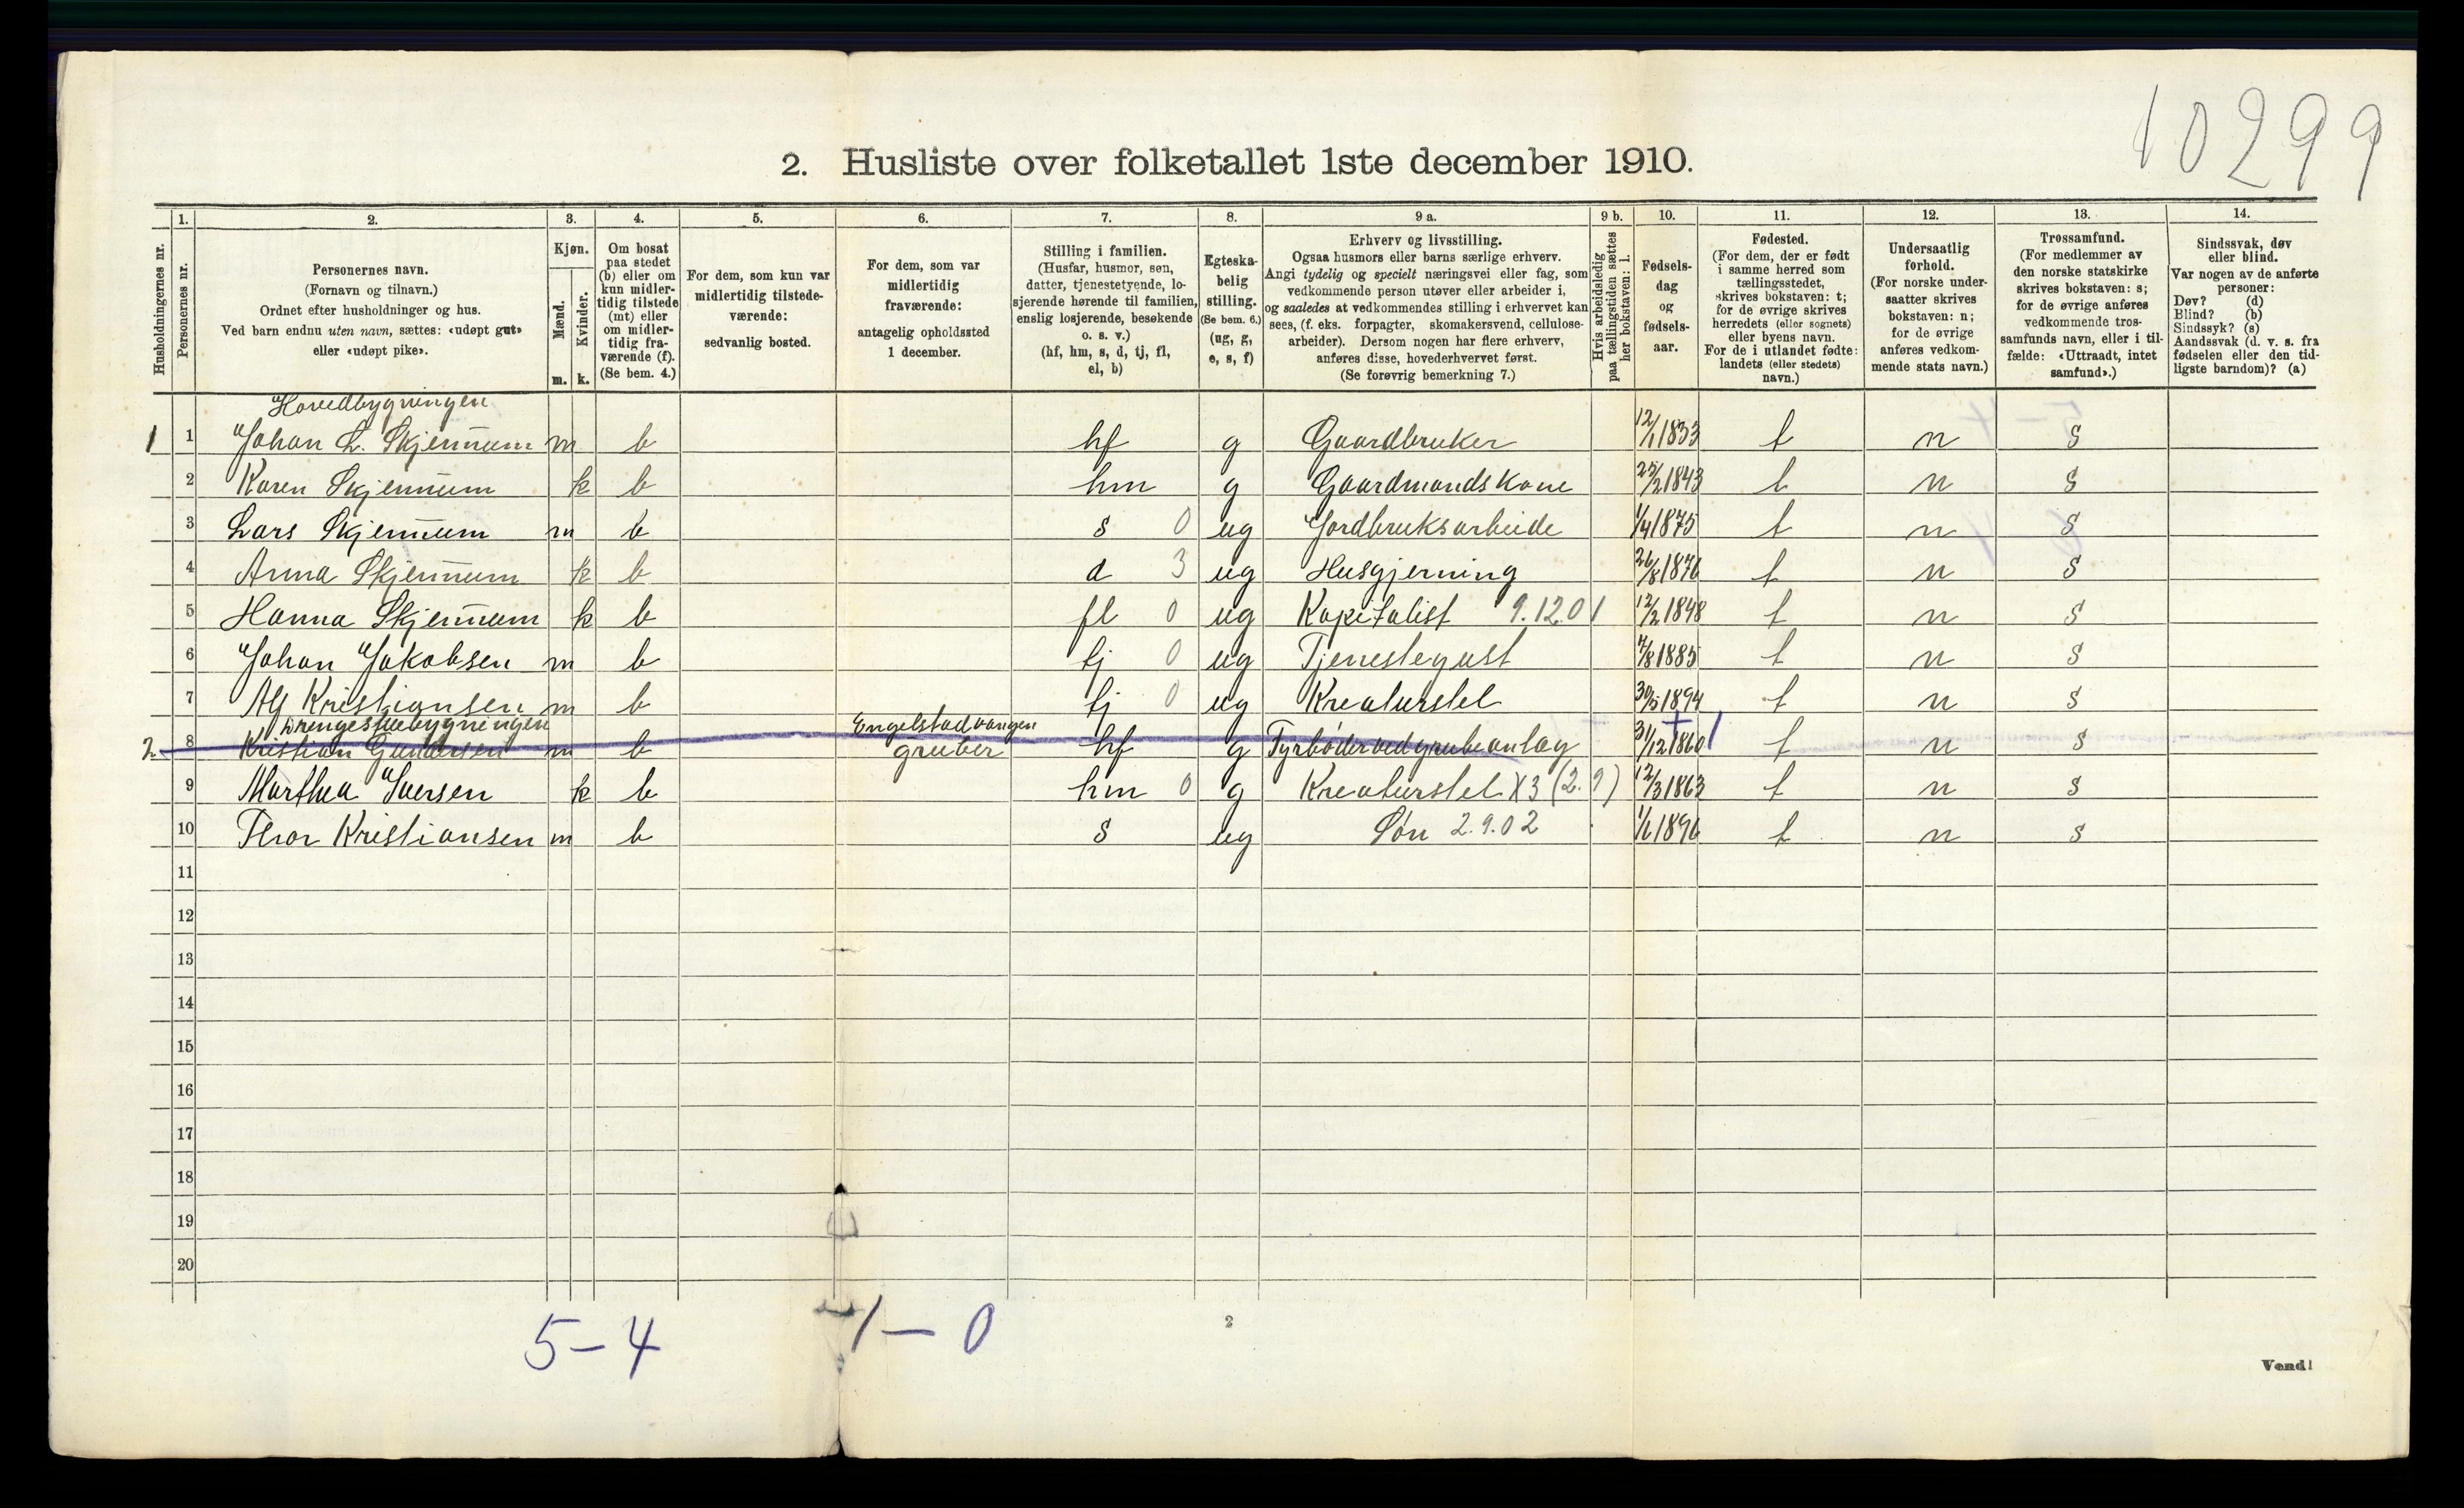 10299
2. Husliste over folketallet 1ste december 1910.
Husholdningernes nr.
1.
Personernes nr.
2.
Personernes navn.
(Fornavn og tilnavn.)
Ordnet efter husholdninger og hus.
Ved barn endnu uten navn, sættes: «udøpt gut»
eller «udøpt pike».
3.
Kjøn.
Mænd.
Kvinder.
m. k.
4.
Om bosat
paa stedet
(b) eller om
kun midler-
tidig tilstede
(mt) eller
om midler-
tidig fra-
værende (f).
(Se bem. 4.)
5.
For dem, som kun var
midlertidig tilstede-
værende:
sedvanlig bosted.
6.
For dem, som var
midlertidig
fraværende:
antagelig opholdssted
1 december.
7.
Stilling i familien.
(Husfar, husmor, søn,
datter, tjenestetyende, lo-
sjerende hørende til familien,
enslig losjerende, besøkende
o. s. v.)
(hf, hm, s, d, tj, fl,
el, b)
8.
Egteska-
belig
stilling.
(Se bem. 6.)
(ug, g,
e, s, f)
9 a.
Erhverv og livsstilling.
Ogsaa husmors eller barns særlige erhverv.
Angi tydelig og specielt næringsvei eller fag, som
vedkommende person utøver eller arbeider i,
og saaledes at vedkommendes stilling i erhvervet kan
sees, (f. eks. forpagter, skomakersvend, cellulose-
arbeider). Dersom nogen har flere erhverv,
anføres disse, hovederhvervet først.
(Se forøvrig bemerkning 7.)
9 b.
Hvis arbeidsledig
paa tællingstiden sættes
her bokstaven: l.
10.
Fødsels-
dag
og
fødsels-
aar.
11.
Fødested.
(For dem, der er født
i samme herred som
tællingsstedet,
skrives bokstaven: t;
for de øvrige skrives
herredets (eller sognets)
eller byens navn.
For de i utlandet fødte:
landets (eller stedets)
navn.)
12.
Undersaatlig
forhold.
(For norske under-
saatter skrives
bokstaven: n;
for de øvrige
anføres vedkom-
mende stats navn.)
13.
Trossamfund.
(For medlemmer av
den norske statskirke
skrives bokstaven: s;
for de øvrige anføres
vedkommende tros-
samfunds navn, eller i til-
fælde: «Uttraadt, intet
samfund».)
14.
Sindssvak, døv
eller blind.
Var nogen av de anførte
personer:
Døv? (d)
Blind? (b)
Sindssyk? (s)
Aandssvak (d. v. s. fra
fødselen eller den tid-
ligste barndom)? (a)
Hovedbygningen
1 1 Johan L. Skjennum m b hf g Gaardbruker 12/1 1833 t n s
2 Karen Skjennum k b hm g Gaardmandskone 25/2 1843 t n s
3 Lars Skjennum m b s 0 ug Jordbruksarbeide 1/4 1875 t n s
4 Anna Skjennum k b d 3 ug Husgjerning 26/8 1876 t n s
5 Hanna Skjennum k b fl 0 ug Kapitalist 9.12.01 12/2 1848 t n s
6 Johan Jakobsen m b tj 0 ug Tjenestegut 4/8 1885 t n s
7 Alf Kristiansen m b tj 0 ug Kreaturstel 30/5 1894 t n s
Drengestuebygningen Engelstadvangen
2 8 Kristian Gundersen m b gruber hf g Fyrbøder ved grubeanlæg 31/12 1860 t n s
9 Marthea Iversen k b hm 0 g Kreaturstel X3 (2.9) 12/3 1863 t n s
10 Thor Kristiansen m b s ug Søn 2.9.02 1/1 1896 t n s
11
12
13
14
15
16
17
18
19
20
5 – 4 1 – 0
2
Vend!